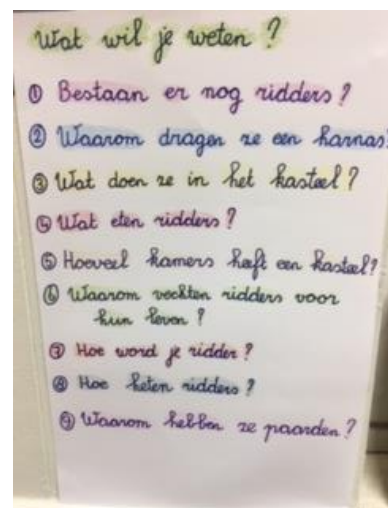 Wat wil je weten ?
① Bestaan er nog ridders ?
② Waarom dragen ze een harnas.
③ Wat doen ze in het kasteel ?
④ Wat eten ridders ?
⑤ Hoeveel kamers heeft een kasteel?
⑥ Waarom vechten ridders voor
hun leven ?
⑦ Hoe word je ridder ?
⑧ Hoe heten ridders ?
⑨ Waarom hebben ze paarden ?